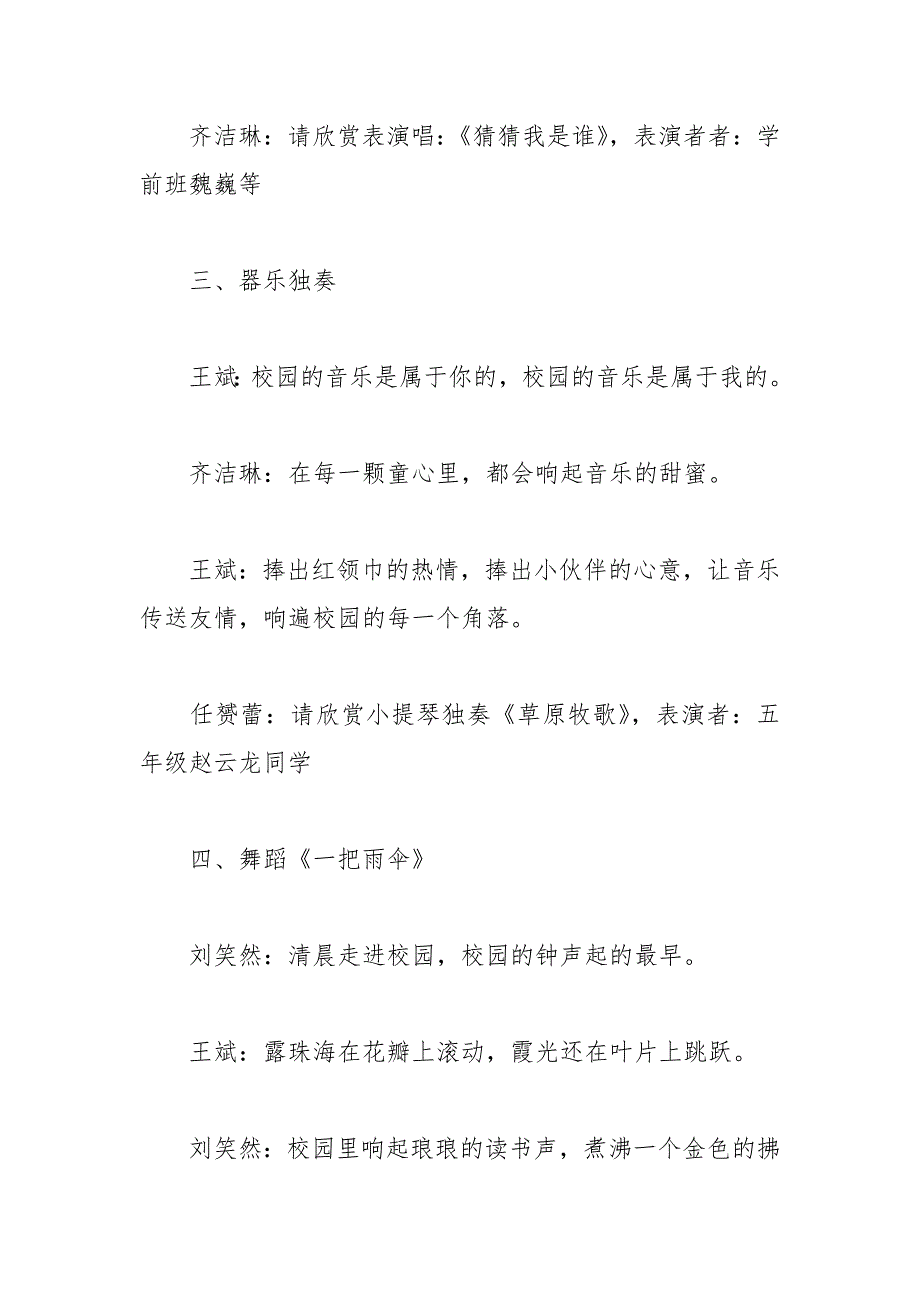 齐洁琳：请欣赏表演唱：《猜猜我是谁》，表演者者：学
前班魏巍等
三、器乐独奏
王斌：校园的音乐是属于你的，校园的音乐是属于我的。
齐洁琳：在每一颗童心里，都会响起音乐的甜蜜。
王斌：捧出红领巾的热情，捧出小伙伴的心意，让音乐
传送友情，响遍校园的每一个角落。
任赟蕾：请欣赏小提琴独奏《草原牧歌》，表演者：五
年级赵云龙同学
四、舞蹈《一把雨伞》
刘笑然：清晨走进校园，校园的钟声起的最早。
王斌：露珠海在花瓣上滚动，霞光还在叶片上跳跃。
刘笑然：校园里响起琅琅的读书声，煮沸一个金色的拂